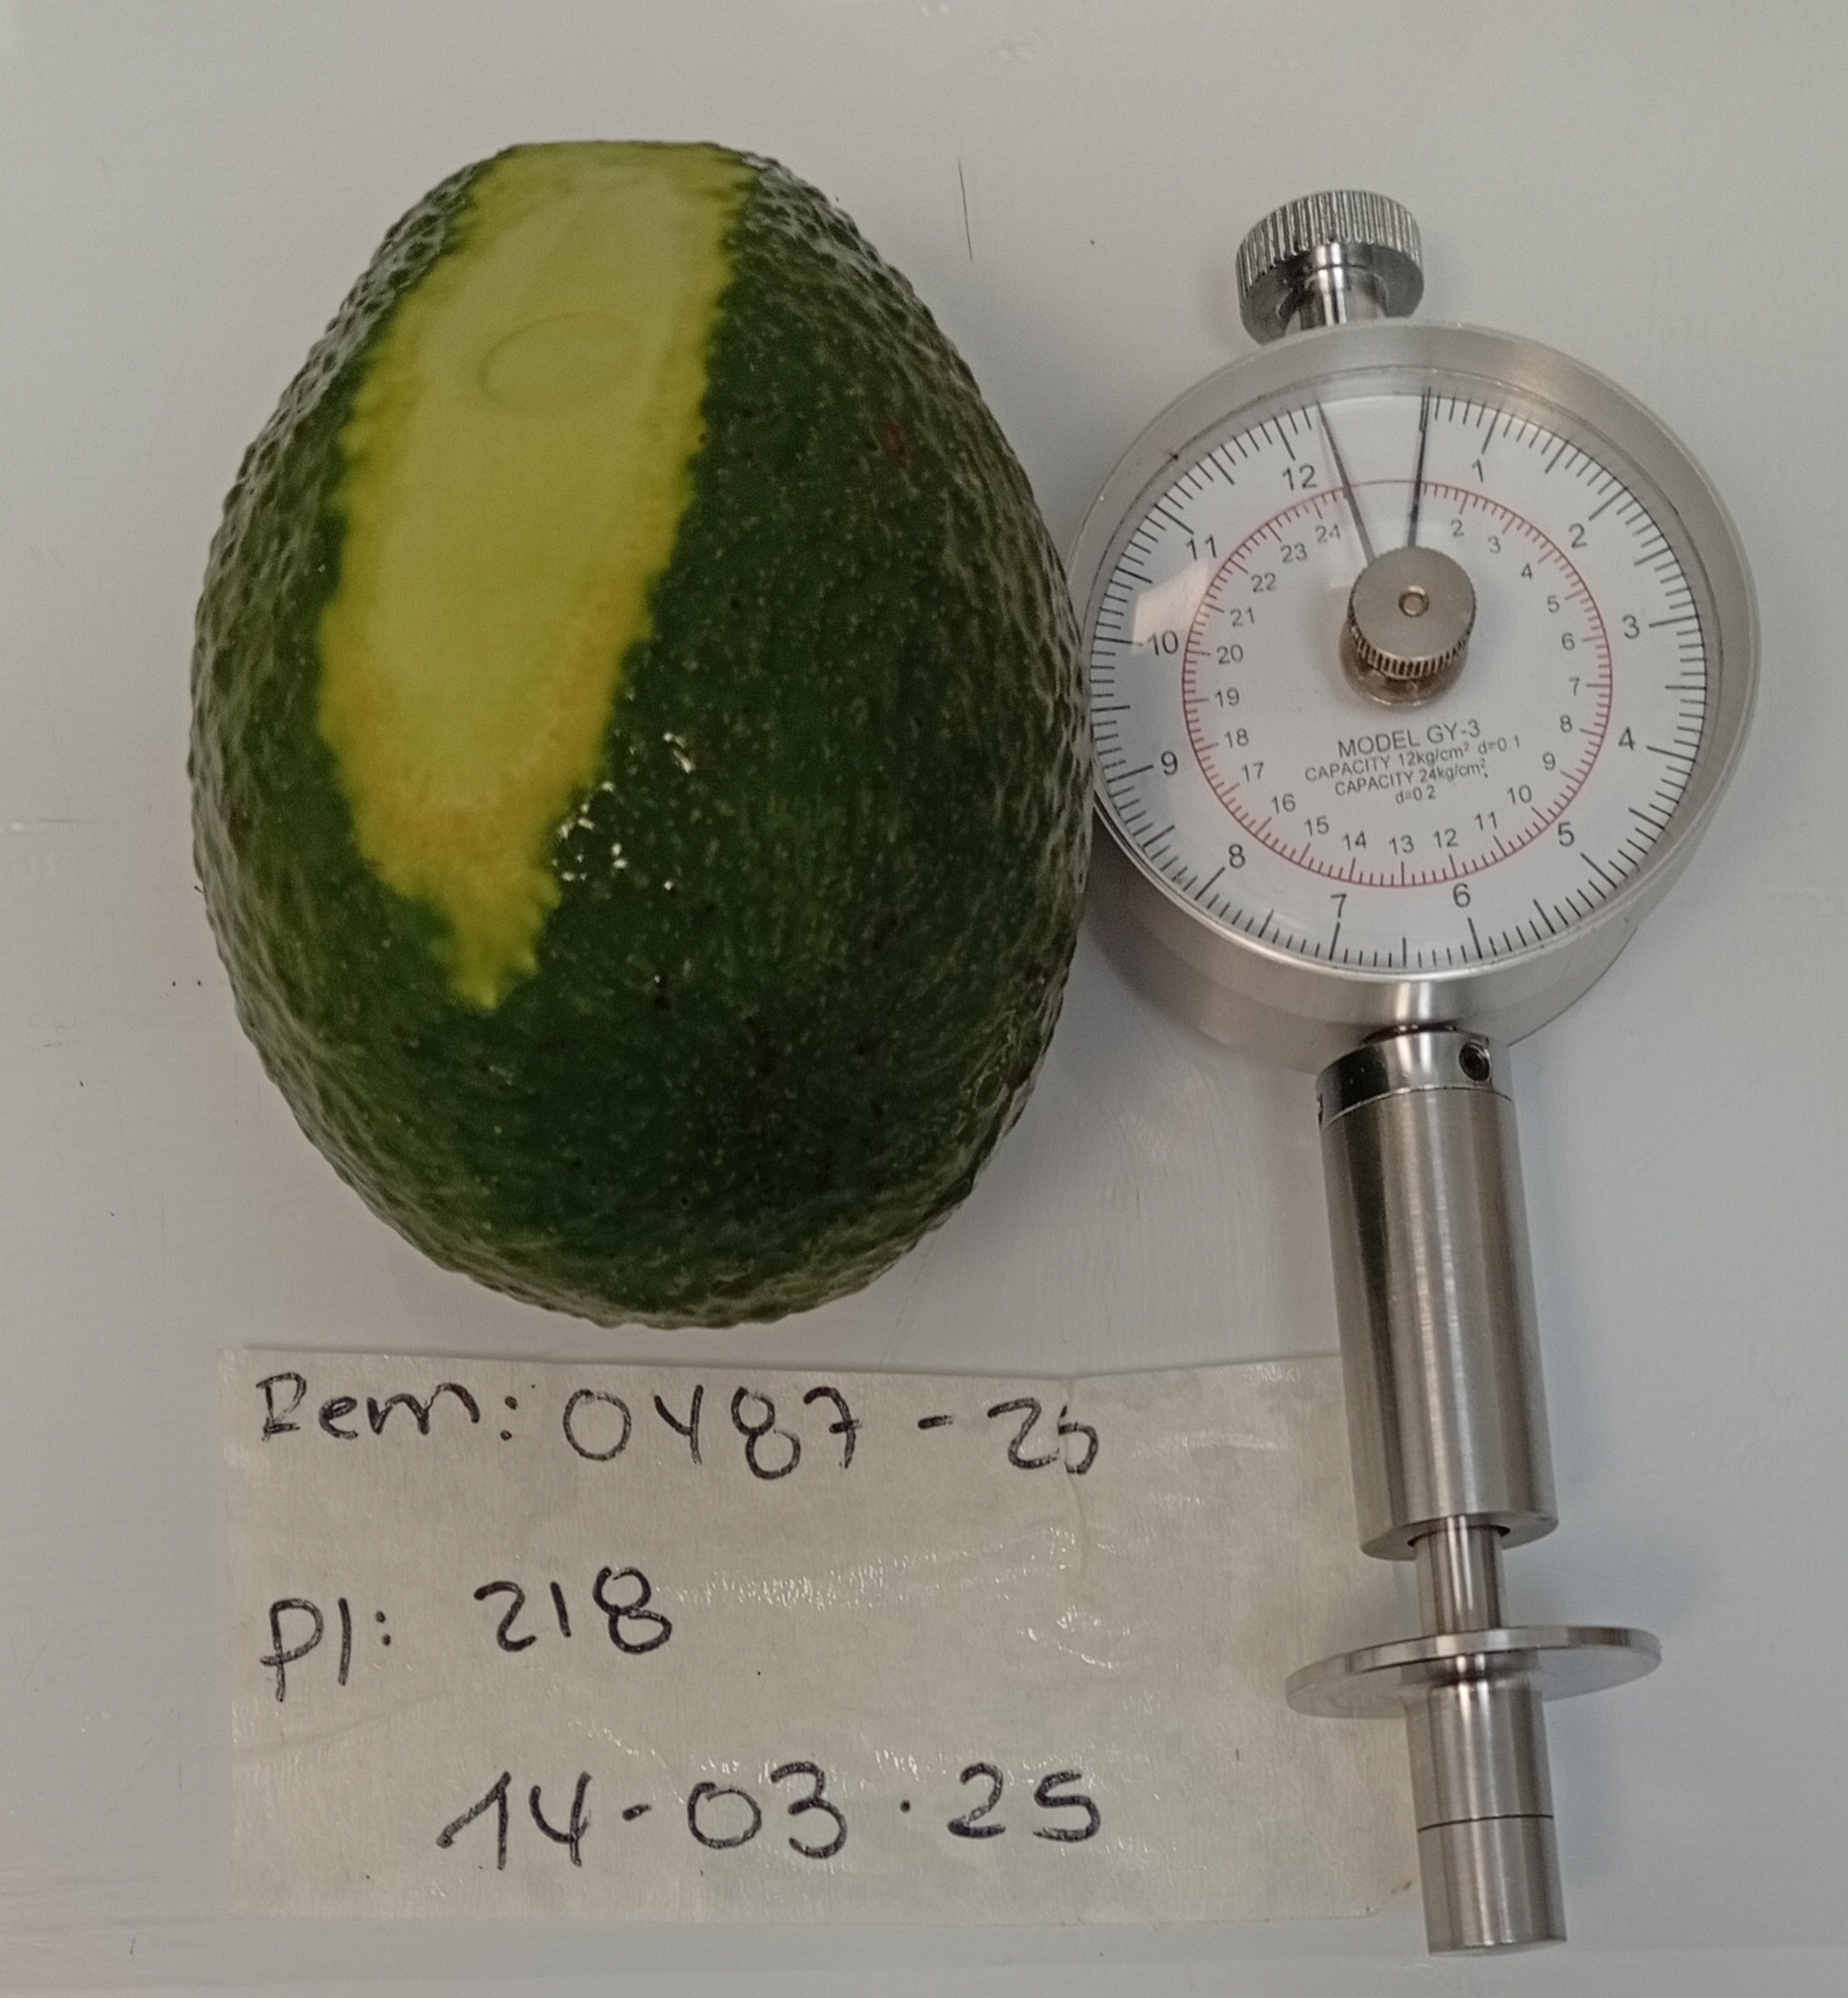 12
1
2
3
4
5
6
7
8
9
10
11
24
23
22
21
20
19
18
17
16
15
14
13
12
11
10
9
8
7
6
5
4
3
2
MODEL GY-3
CAPACITY 12kg/cm² d=0.1
CAPACITY 24kg/cm²
d=0.2
Rem: 0487-25
Pl: 218
14-03.25